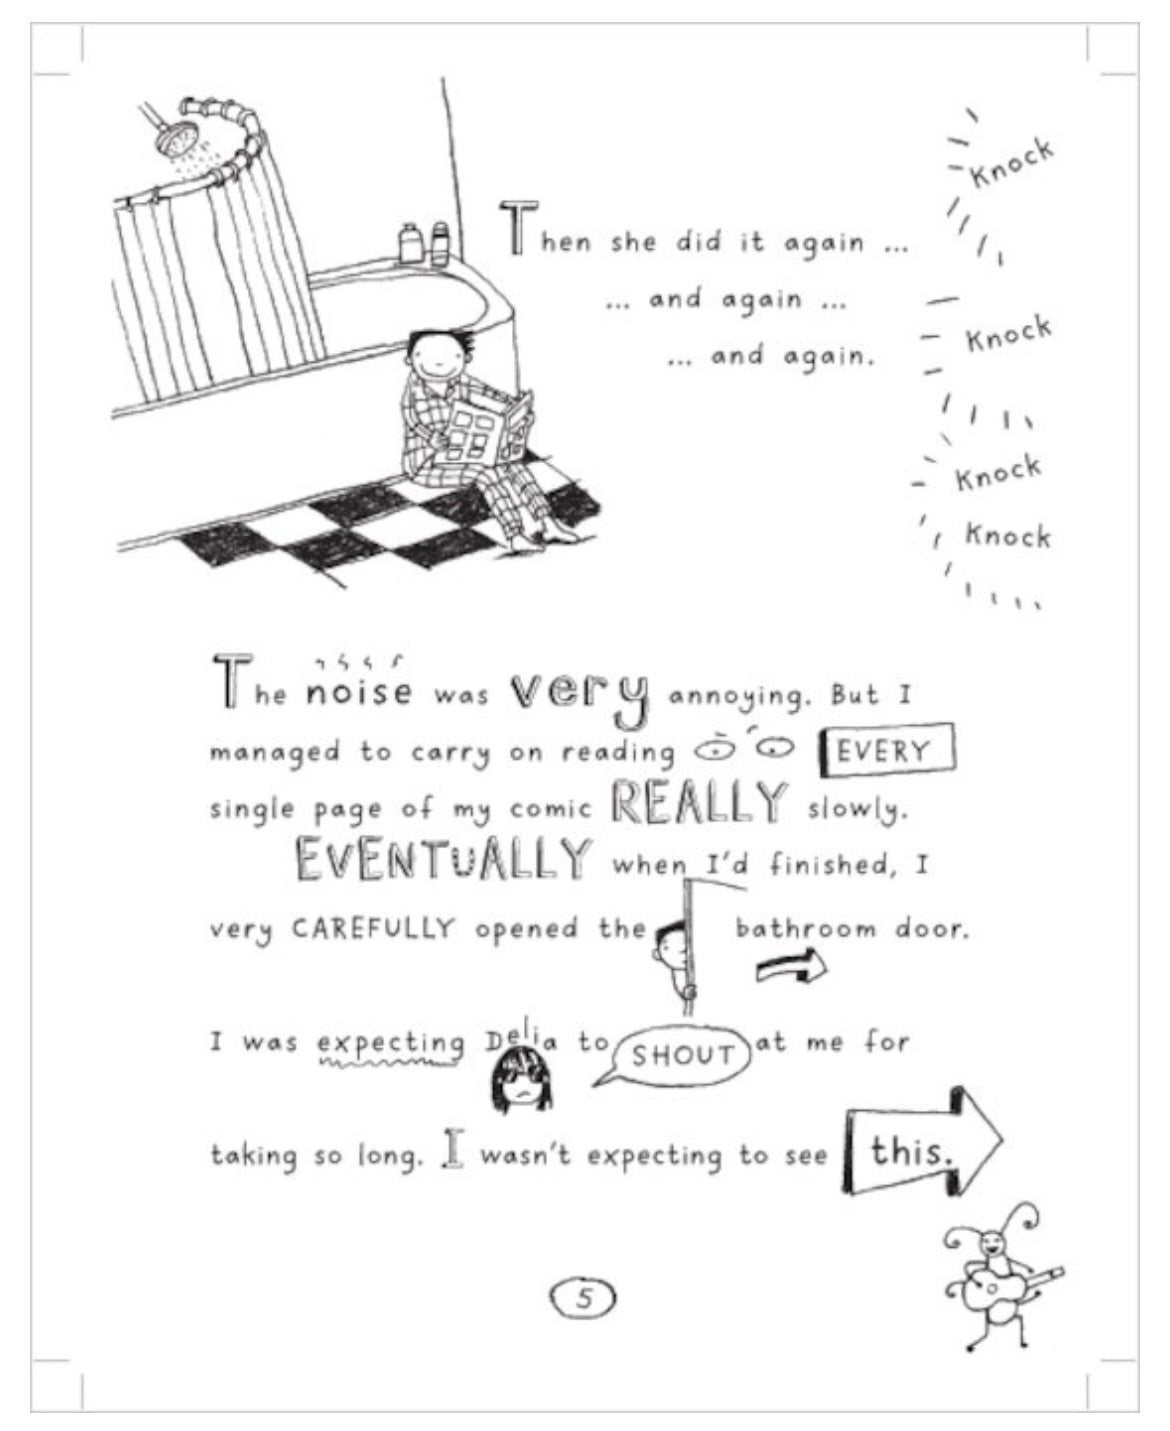 Then she did it again ...
... and again ...
... and again.
Knock
Knock
Knock
Knock
The noise was very annoying. But I
managed to carry on reading EVERY
single page of my comic REALLY slowly.
EVENTUALLY when I'd finished, I
very CAREFULLY opened the bathroom door.
I was expecting Delia to SHOUT at me for
taking so long. I wasn't expecting to see this.
5